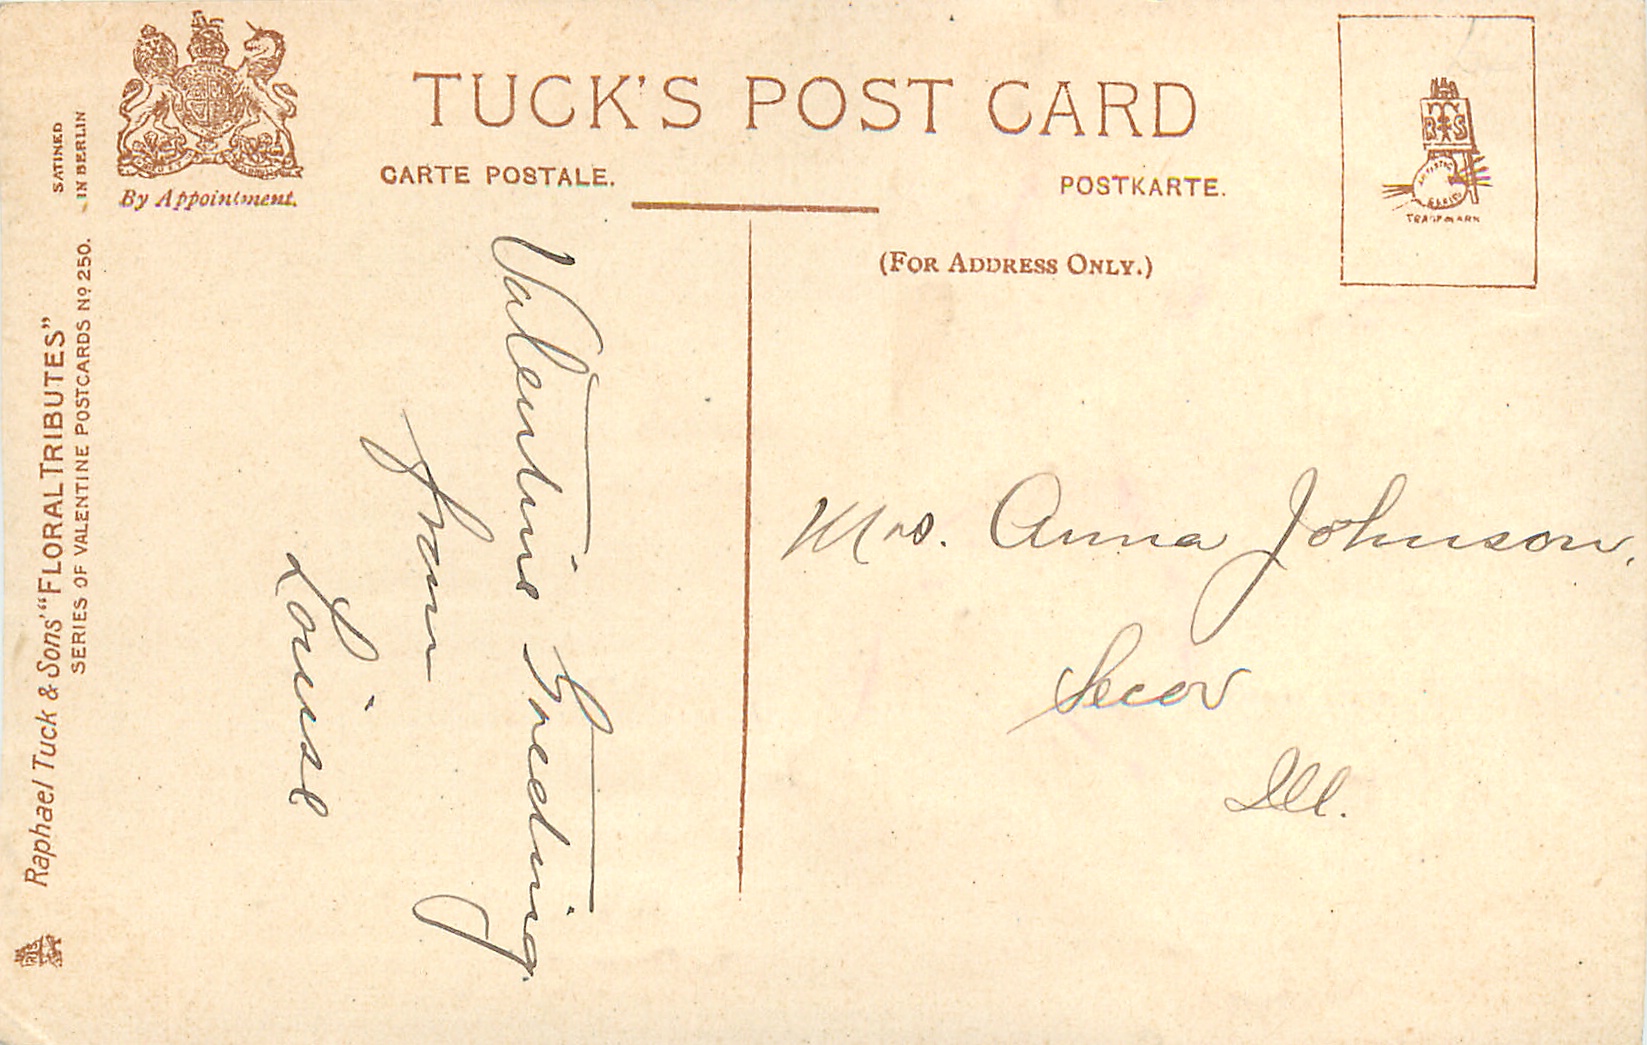 TUCK'S POST CARD
CARTE POSTALE.
POSTKARTE.
(FOR ADDRESS ONLY.)
By Appointment.
SATINED
IN BERLIN
Raphael Tuck & Sons' "FLORAL TRIBUTES"
SERIES OF VALENTINE POSTCARDS No 250.
R S
TRADE MARK
Valentine Greeting
from
Louise
Mrs. Anna Johnson.
Secor
Ill.